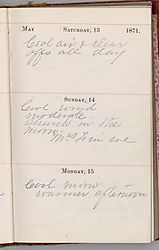 MAY SATURDAY, 13 1871.
Cool air & clear
off all day
SUNDAY, 14
Cool wind
moderate
church in the
morn.
eve
MONDAY, 15
Cool morn
warmer afternoon